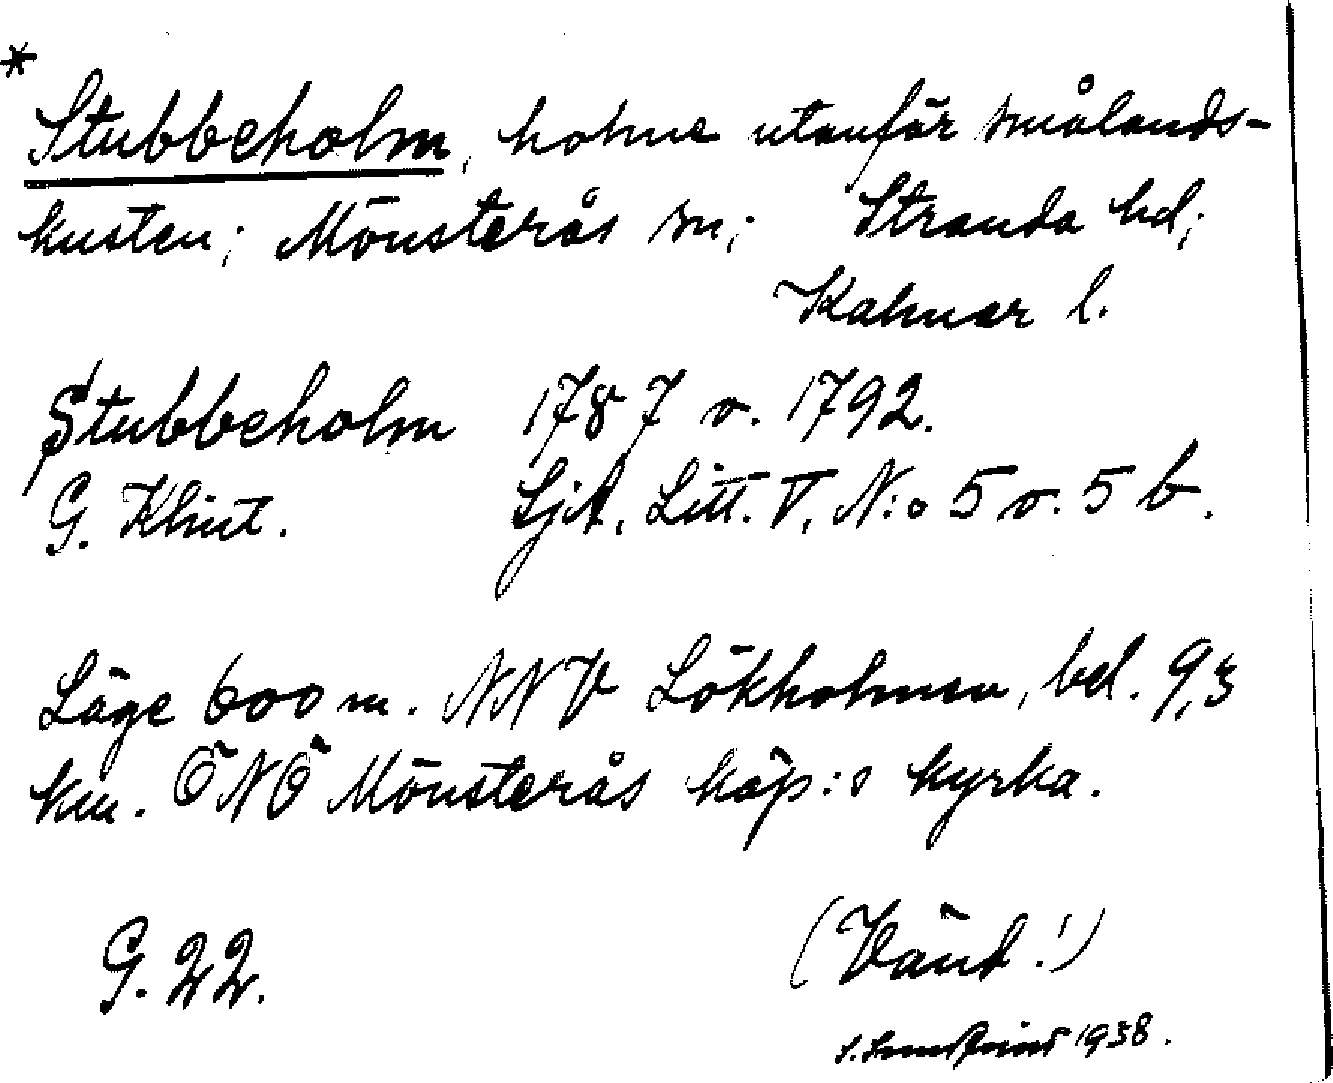 *
Stubbeholm, holme utanför smålands-
kusten; Mönsterås sn; Stranda hd;
Kalmar l.
Stubbeholm 1787 o. 1792.
G. Klint. SjA, Litt. V, N:o 5 o. 5 b.
Läge 600 m. NNV Lökholmen, bel. 9,3
km. ÖNÖ Mönsterås köp:s kyrka.
G. 22. (Vänd!)
1938.